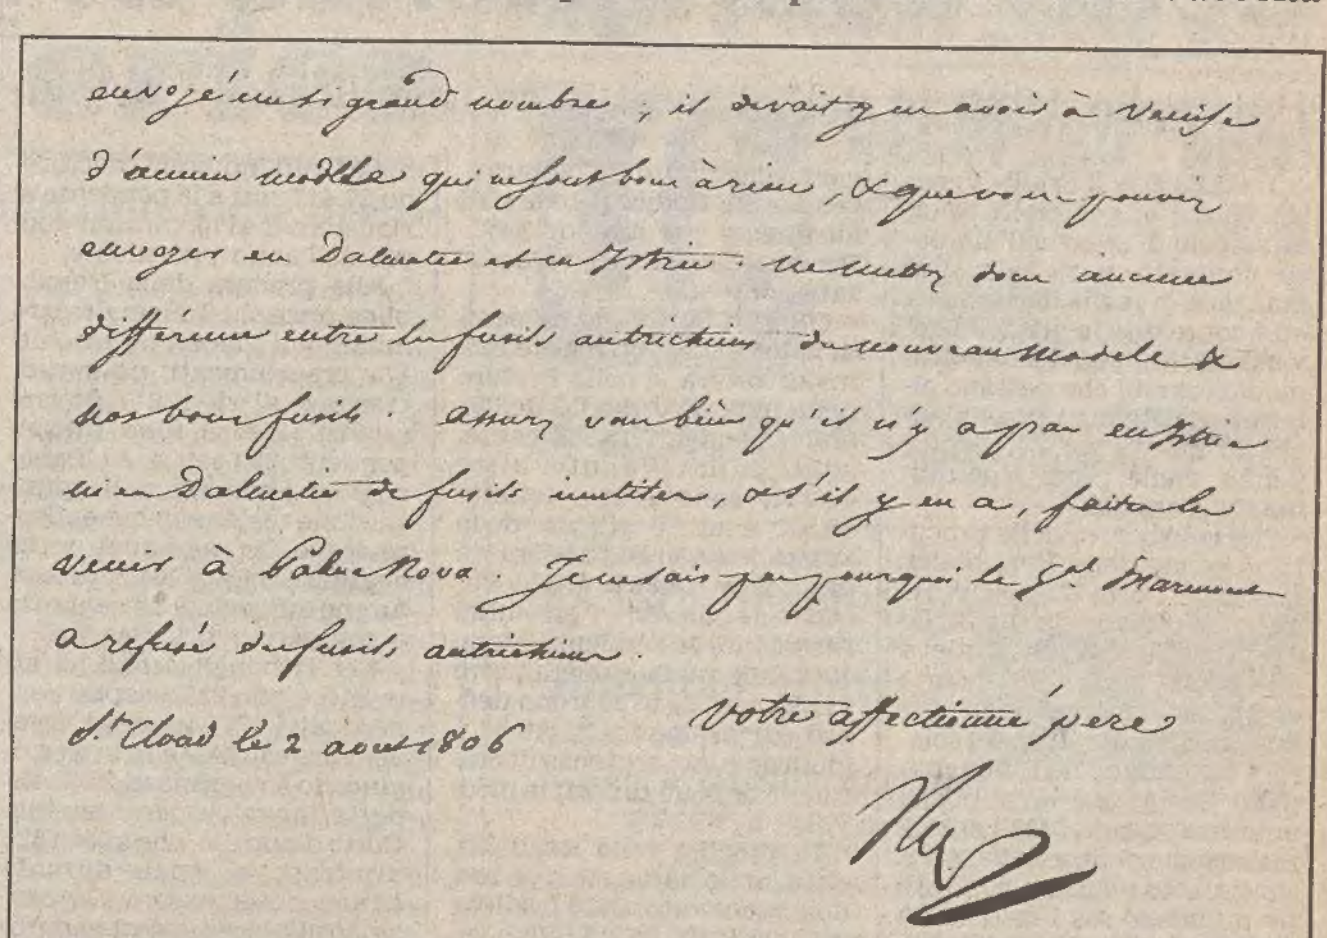 envoyé en si grand nombre, il devait y en avoir à Venise
d'ancien modèle qui ne sont bons à rien, & que vous pouviez
envoyer en Dalmatie et en Istrie. ne mettez donc aucune
différence entre les fusils autrichiens du nouveau modele &
nos bons fusils. assurez vous bien qu'il n'y a pas en Istrie
ni en Dalmatie de fusils inutiles, & s'il y en a, faites les
venir à Palma Nova. Je ne sais pas pourquoi le Gal. Marmont
a refusé des fusils autrichiens.
St. Cloud le 2 aout 1806
votre affectionné pere